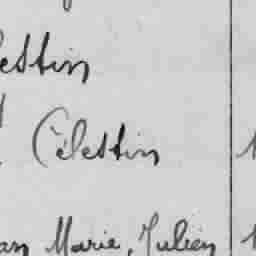 estin
Célestin
an Marie, Julien